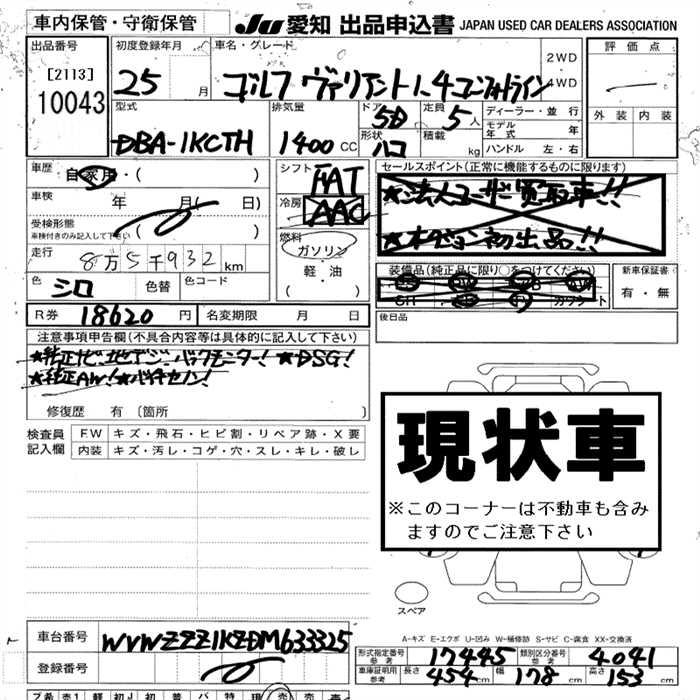 車内保管・守衛保管
JU 愛知 出品申込書 JAPAN USED CAR DEALERS ASSOCIATION
出品番号 初度登録年月 車名・グレード 評価点
[2113] 25 月 ゴルフ ヴァリアント1.4コンフォートライン 2WD
10043 4WD
外装 内装
型式 排気量 ドア 5D 定員 5人 ディーラー・並行
モデル年式 年
DBA-1KCTH 1400 CC 形状 ハコ 積載 kg ハンドル 左・右
車歴 自家用・( ) シフト FAT セールスポイント(正常に機能するものに限ります)
車検 年 月( 日) 冷房 AAC ★法人ユーザー買取車!!
受検形態 ( )
車検付きのみ記入して下さい
★オークション初出品!!
走行 8万5千932km 燃料 ガソリン・軽・油
装備品(純正品に限り○をつけてください) 新車保証書
有・無
色 シロ 色替 色コード
後日品
R券 18620円 名変期限 月 日
注意事項申告欄(不具合内容等は具体的に記入して下さい)
★純正ナビ.地デジ.バックモニター! ★DSG!
★純正AW! ★バイキセノン!
修復歴 有 [箇所 ]
検査員 FW キズ・飛石・ヒビ割・リペア跡・X要
記入欄 内装 キズ・汚レ・コゲ・穴・スレ・キレ・破レ
現状車
※このコーナーは不動車も含み
ますのでご注意下さい
スペア
A-キズ E-エクボ U-凹み W-補修跡 S-サビ C-腐食 XX-交換済
車台番号 WVWZZZ1KZDM633325
形式指定番号 参考 17445 類別区分番号 参考 4041
登録番号
車庫証明用 参考 長さ 454cm 幅 178cm 高さ 153cm